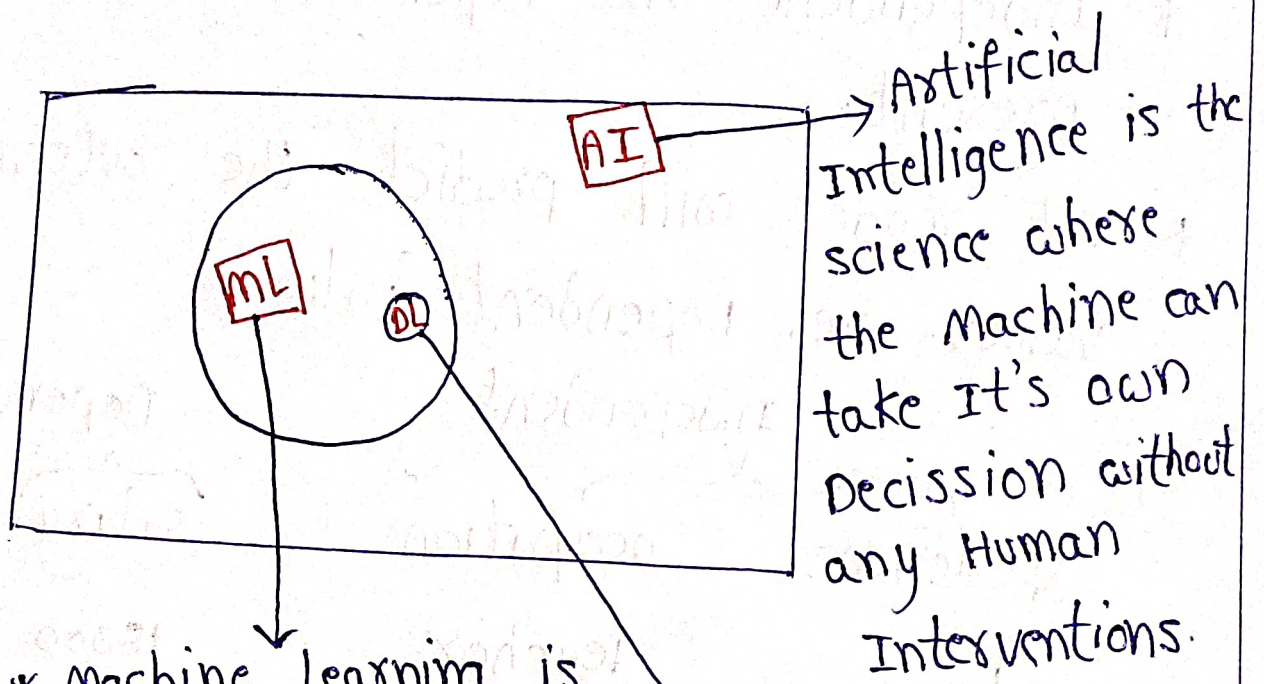 AI
ML
DL
Artificial
Intelligence is the
science where
the Machine can
take It's own
Decission without
any Human
Interventions.
* Machine learning is